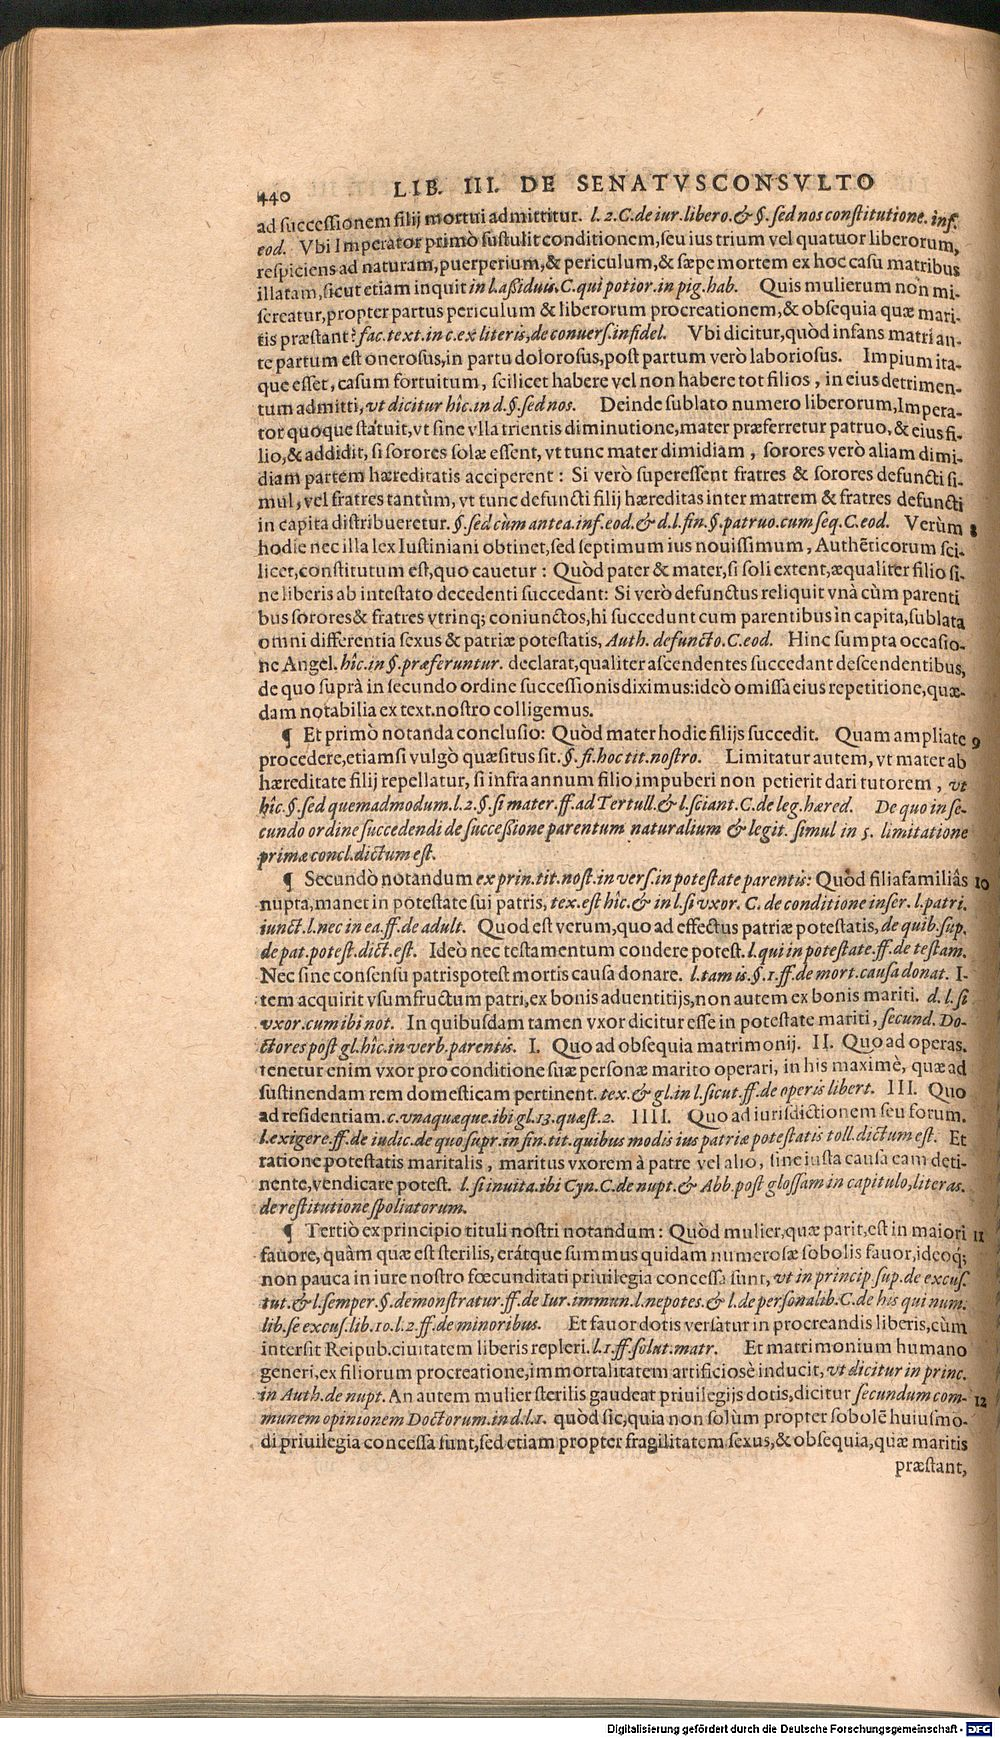 440 LIB. III. DE SENATVSCONSVLTO
ad successionem filij mortui admittitur. l. 2. C. de iur. libero. & §. sed nos constitutione. inf.
eod. Vbi Imperator primò sustulit conditionem, seu ius trium vel quatuor liberorum,
respiciens ad naturam, puerperium, & periculum, & sæpe mortem ex hoc casu matribus
illatam, sicut etiam inquit in l. aßiduis. C. qui potior. in pig. hab. Quis mulierum non mi-
sereatur, propter partus periculum & liberorum procreationem, & obsequia quæ mari-
tis præstant? fac. text. in c. ex literis, de conuers. infidel. Vbi dicitur, quòd infans matri an-
te partum est onerosus, in partu dolorosus, post partum verò laboriosus. Impium ita-
que esset, casum fortuitum, scilicet habere vel non habere tot filios, in eius detrimen-
tum admitti, vt dicitur hîc. in d. §. sed nos. Deinde sublato numero liberorum, Impera-
tor quoque statuit, vt sine vlla trientis diminutione, mater præferretur patruo, & eius fi-
lio, & addidit, si sorores solæ essent, vt tunc mater dimidiam, sorores verò aliam dimi-
diam partem hæreditatis acciperent: Si verò superessent fratres & sorores defuncti si-
mul, vel fratres tantùm, vt tunc defuncti filij hæreditas inter matrem & fratres defuncti
in capita distribueretur. §. sed cùm antea. inf. eod. & d. l. fin. §. patruo. cum seq. C. eod. Verùm 8
hodie nec illa lex Iustiniani obtinet, sed septimum ius nouissimum, Authēticorum sci-
licet, constitutum est, quo cauetur: Quòd pater & mater, si soli extent, æqualiter filio si-
ne liberis ab intestato decedenti succedant: Si verò defunctus reliquit vnà cùm parenti
bus sorores & fratres vtrinq; coniunctos, hi succedunt cum parentibus in capita, sublata
omni differentia sexus & patriæ potestatis, Auth. defuncto. C. eod. Hinc sumpta occasio-
ne Angel. hîc. in §. præferuntur. declarat, qualiter ascendentes succedant descendentibus,
de quo suprà in secundo ordine successionis diximus: ideò omissa eius repetitione, quæ-
dam notabilia ex text. nostro colligemus.
¶ Et primò notanda conclusio: Quòd mater hodie filijs succedit. Quam ampliate 9
procedere, etiamsi vulgò quæsitus sit. §. fi. hoc tit. nostro. Limitatur autem, vt mater ab
hæreditate filij repellatur, si infra annum filio impuberi non petierit dari tutorem, vt
hîc. §. sed quemadmodum. l. 2. §. si mater. ff. ad Tertull. & l. sciant. C. de leg. hæred. De quo in se-
cundo ordine succedendi de successione parentum naturalium & legit. simul in 5. limitatione
primæ concl. dictum est.
¶ Secundò notandum ex prin. tit. nost. in vers. in potestate parentis: Quòd filiafamiliâs 10
nupta, manet in potestate sui patris, tex. est hîc. & in l. si vxor. C. de conditione inser. l. patri.
iunct. l. nec in ea. ff. de adult. Quod est verum, quo ad effectus patriæ potestatis, de quib. sup.
de pat. potest. dict. est. Ideò nec testamentum condere potest. l. qui in potestate. ff. de testam.
Nec sine consensu patris potest mortis causa donare. l. tam is. §. 1. ff. de mort. causa donat. I-
tem acquirit vsumfructum patri, ex bonis aduentitijs, non autem ex bonis mariti. d. l. si
vxor. cum ibi not. In quibusdam tamen vxor dicitur esse in potestate mariti, secund. Do-
ctores post gl. hîc. in verb. parentis. I. Quo ad obsequia matrimonij. II. Quo ad operas.
tenetur enim vxor pro conditione suæ personæ marito operari, in his maximè, quæ ad
sustinendam rem domesticam pertinent. tex. & gl. in l. sicut. ff. de operis libert. III. Quo
ad residentiam. c. vnaquæque. ibi gl. 13. quæst. 2. IIII. Quo ad iurisdictionem seu forum.
l. exigere. ff. de iudic. de quo supr. in fin. tit. quibus modis ius patriæ potestatis toll. dictum est. Et
ratione potestatis maritalis, maritus vxorem à patre vel alio, sine iusta causa eam deti-
nente, vendicare potest. l. si inuita. ibi Cyn. C. de nupt. & Abb. post glossam in capitulo, literas.
de restitutione spoliatorum.
¶ Tertiò ex principio tituli nostri notandum: Quòd mulier, quæ parit, est in maiori 11
fauore, quàm quæ est sterilis, erátque summus quidam numerosæ sobolis fauor, ideoq;
non pauca in iure nostro fœcunditati priuilegia concessa sunt, vt in princip. sup. de excus.
tut. & l. semper. §. demonstratur. ff. de Iur. immun. l. nepotes. & l. de personalib. C. de his qui num.
lib. se excus. lib. 10. l. 2. ff. de minoribus. Et fauor dotis versatur in procreandis liberis, cùm
intersit Reipub. ciuitatem liberis repleri. l. 1. ff. solut. matr. Et matrimonium humano
generi, ex filiorum procreatione, immortalitatem artificiosè inducit, vt dicitur in princ.
in Auth. de nupt. An autem mulier sterilis gaudeat priuilegijs dotis, dicitur secundum com- 12
munem opinionem Doctorum. in d. l. 1. quòd sic, quia non solùm propter sobolē huiusmo-
di priuilegia concessa sunt, sed etiam propter fragilitatem sexus, & obsequia, quæ maritis
præstant,
Digitalisierung gefördert durch die Deutsche Forschungsgemeinschaft - DFG